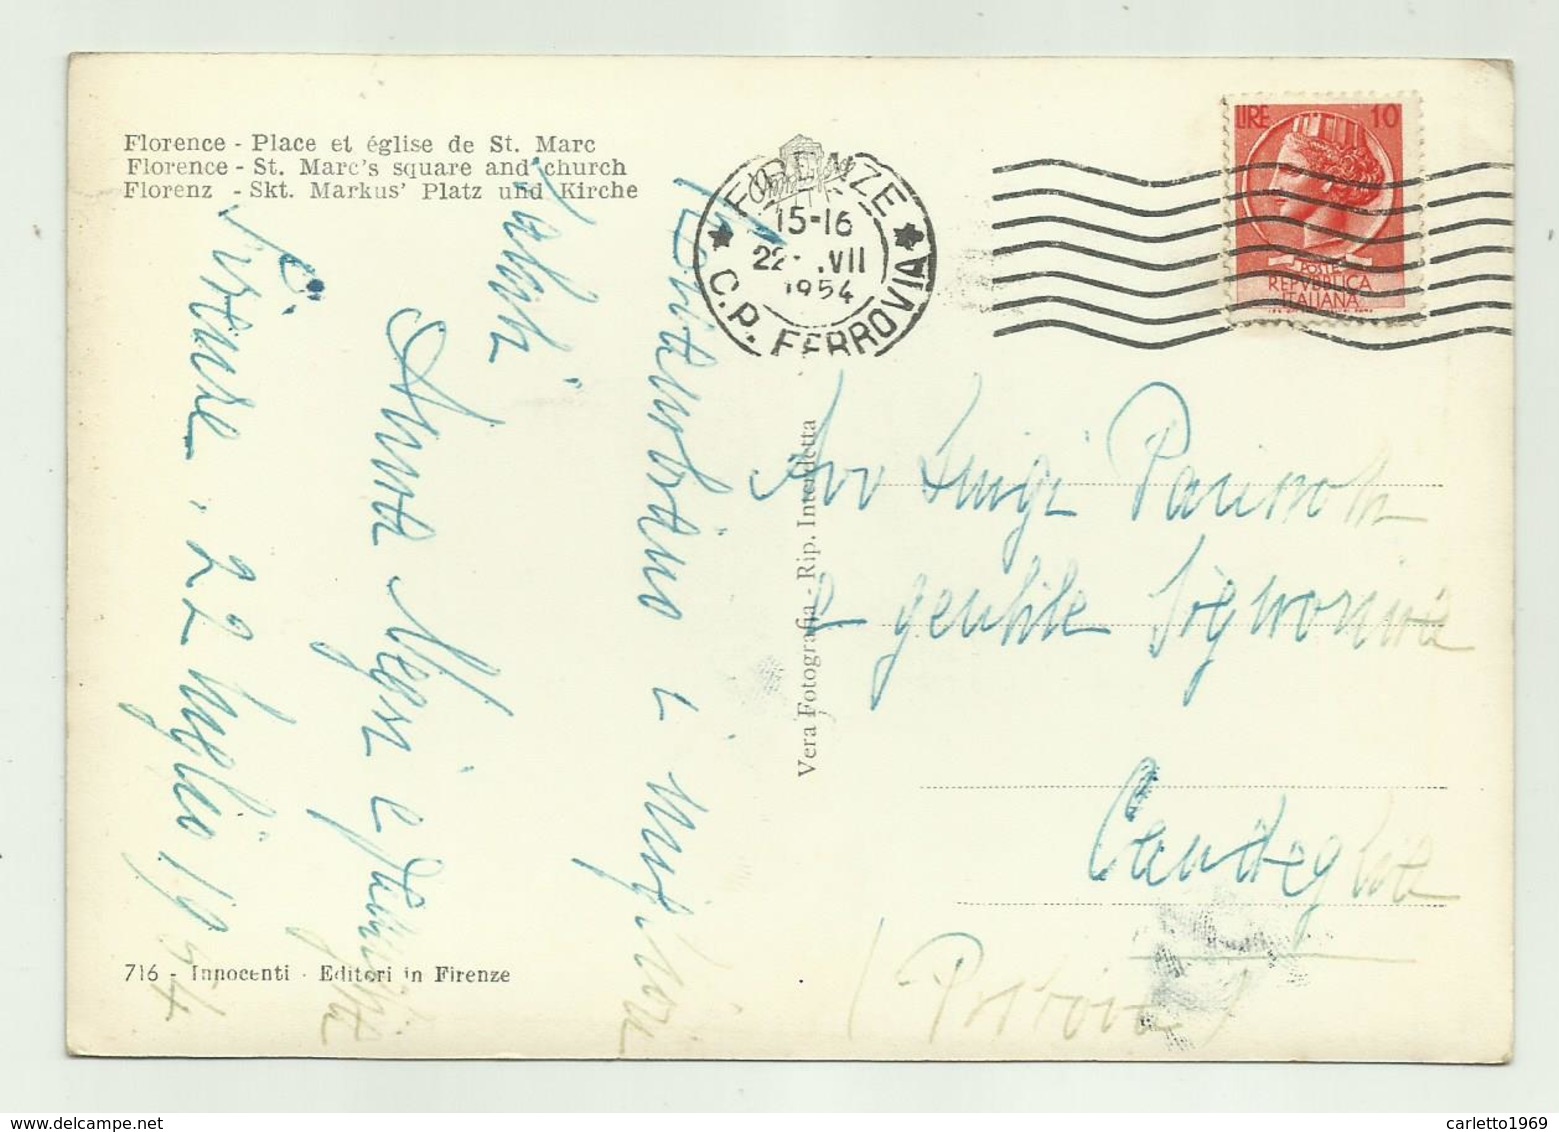 Florence - Place et église de St. Marc
Florence - St. Marc's square and church
Florenz - Skt. Markus' Platz und Kirche
FIRENZE
15-16
22 VII
1954
C.P. FERROVIA
LIRE 10
POSTE
REPVBBLICA
ITALIANA
Ricambiamo i migliori
saluti
Anna Negri e famiglia
Firenze, 22 luglio 1954
Vera Fotografia - Rip. Interdetta
Avv Luigi
e gentile Signorina
Candeglia
(Pistoia)
716 - Innocenti - Editori in Firenze
carletto1969